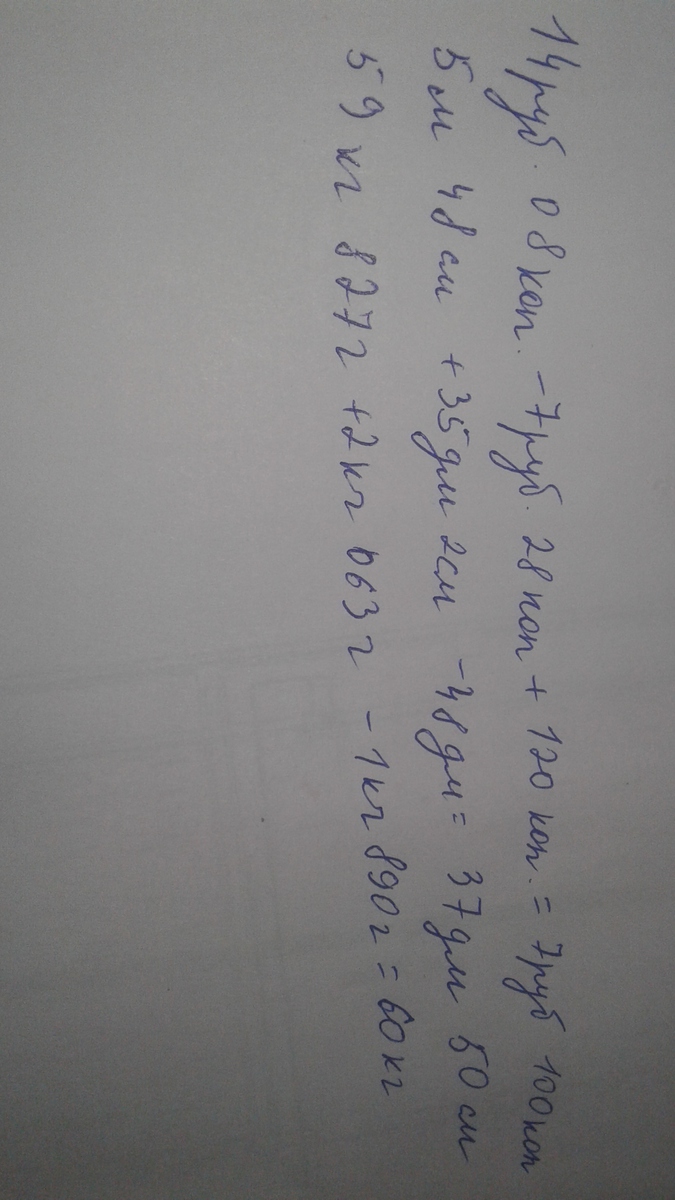 14руб. 08коп. -7руб. 28коп + 120 коп. = 7руб 100коп
5м 48см +35дм 2см -48дм = 37дм 50см
59 кг 827г +2кг 063г -1кг 890г = 60кг